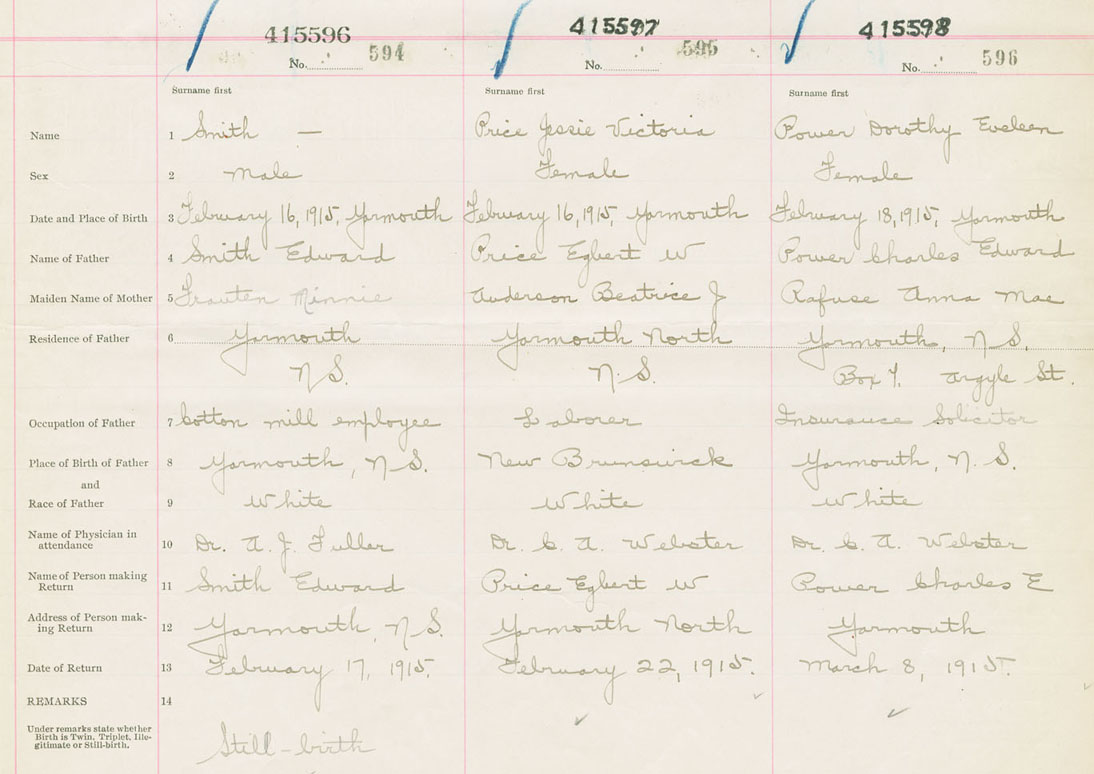 415596 415597 415598
No. 594 No. 595 No. 596
Surname first Surname first Surname first
Name 1 Smith — Price Jessie Victoria Power Dorothy Eveleen
Sex 2 Male Female Female
Date and Place of Birth 3 February 16, 1915, Yarmouth February 16, 1915, Yarmouth February 18, 1915, Yarmouth
Name of Father 4 Smith Edward Price Egbert W Power Charles Edward
Maiden Name of Mother 5 Minnie Anderson Beatrice J Rafuse Anna Mae
Residence of Father 6 Yarmouth Yarmouth North Yarmouth, N S,
N S. N. S. Box 7. Argyle St.
Occupation of Father 7 Cotton mill employee Laborer Insurance Solicitor
Place of Birth of Father 8 Yarmouth, N S. New Brunswick Yarmouth, N. S.
and
Race of Father 9 White White White
Name of Physician in
attendance 10 Dr. A. J. Fuller Dr. C. A. Webster Dr. C. A. Webster
Name of Person making
Return 11 Smith Edward Price Egbert W Power Charles E
Address of Person mak-
ing Return 12 Yarmouth, N S. Yarmouth North Yarmouth
Date of Return 13 February 17, 1915. February 22, 1915. March 8, 1915.
REMARKS 14
Under remarks state whether
Birth is Twin, Triplet, Ille-
gitimate or Still-birth.
Still-birth